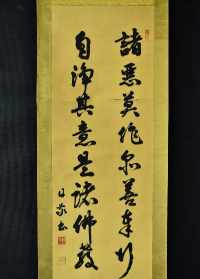 諸悪莫作衆善奉行
自浄其意是諸佛教